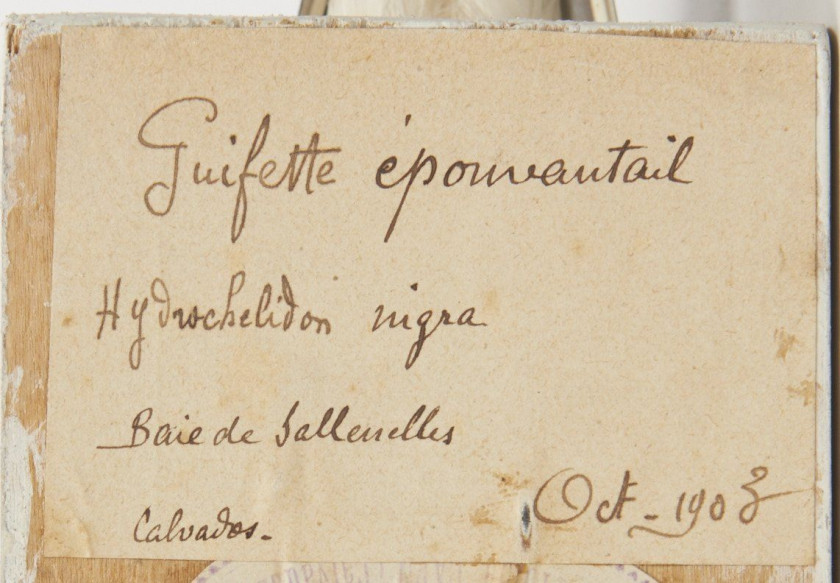 Guifette épouvantail
Hydrochelidon nigra
Baie de Sallenelles
Calvados.
Oct - 1903